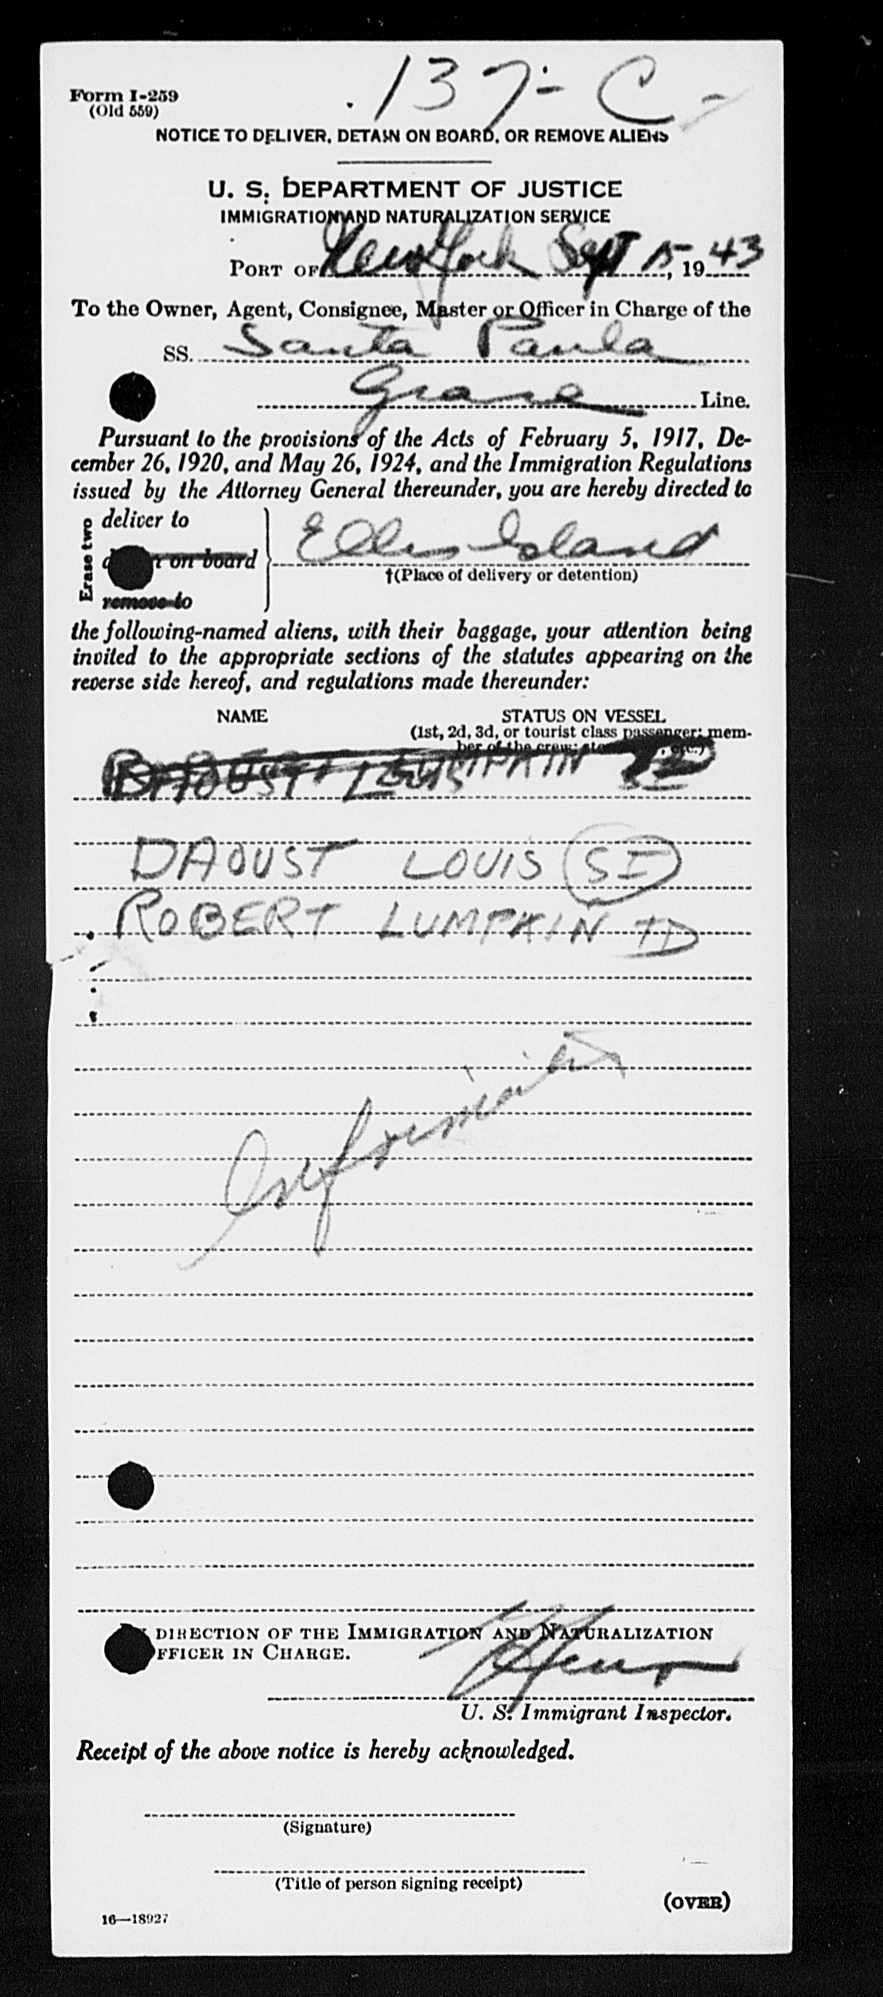 137-C
Form I-259
(Old 559)
NOTICE TO DELIVER, DETAIN ON BOARD, OR REMOVE ALIENS
U. S. DEPARTMENT OF JUSTICE
IMMIGRATION AND NATURALIZATION SERVICE
PORT OF New York Sept 15, 1943
To the Owner, Agent, Consignee, Master or Officer in Charge of the
SS. Santa Paula
Grace Line.
Pursuant to the provisions of the Acts of February 5, 1917, De-
cember 26, 1920, and May 26, 1924, and the Immigration Regulations
issued by the Attorney General thereunder, you are hereby directed to
Erase two
deliver to
on board
remove to
Ellis Island
†(Place of delivery or detention)
the following-named aliens, with their baggage, your attention being
invited to the appropriate sections of the statutes appearing on the
reverse side hereof, and regulations made thereunder:
NAME STATUS ON VESSEL
(1st, 2d, 3d, or tourist class passenger; mem-
ber of the crew; etc.)
DAOUST LOUIS SI
ROBERT LUMPKIN TD
DIRECTION OF THE IMMIGRATION AND NATURALIZATION
FFICER IN CHARGE.
U. S. Immigrant Inspector.
Receipt of the above notice is hereby acknowledged.
(Signature)
(Title of person signing receipt)
(OVER)
16—18927